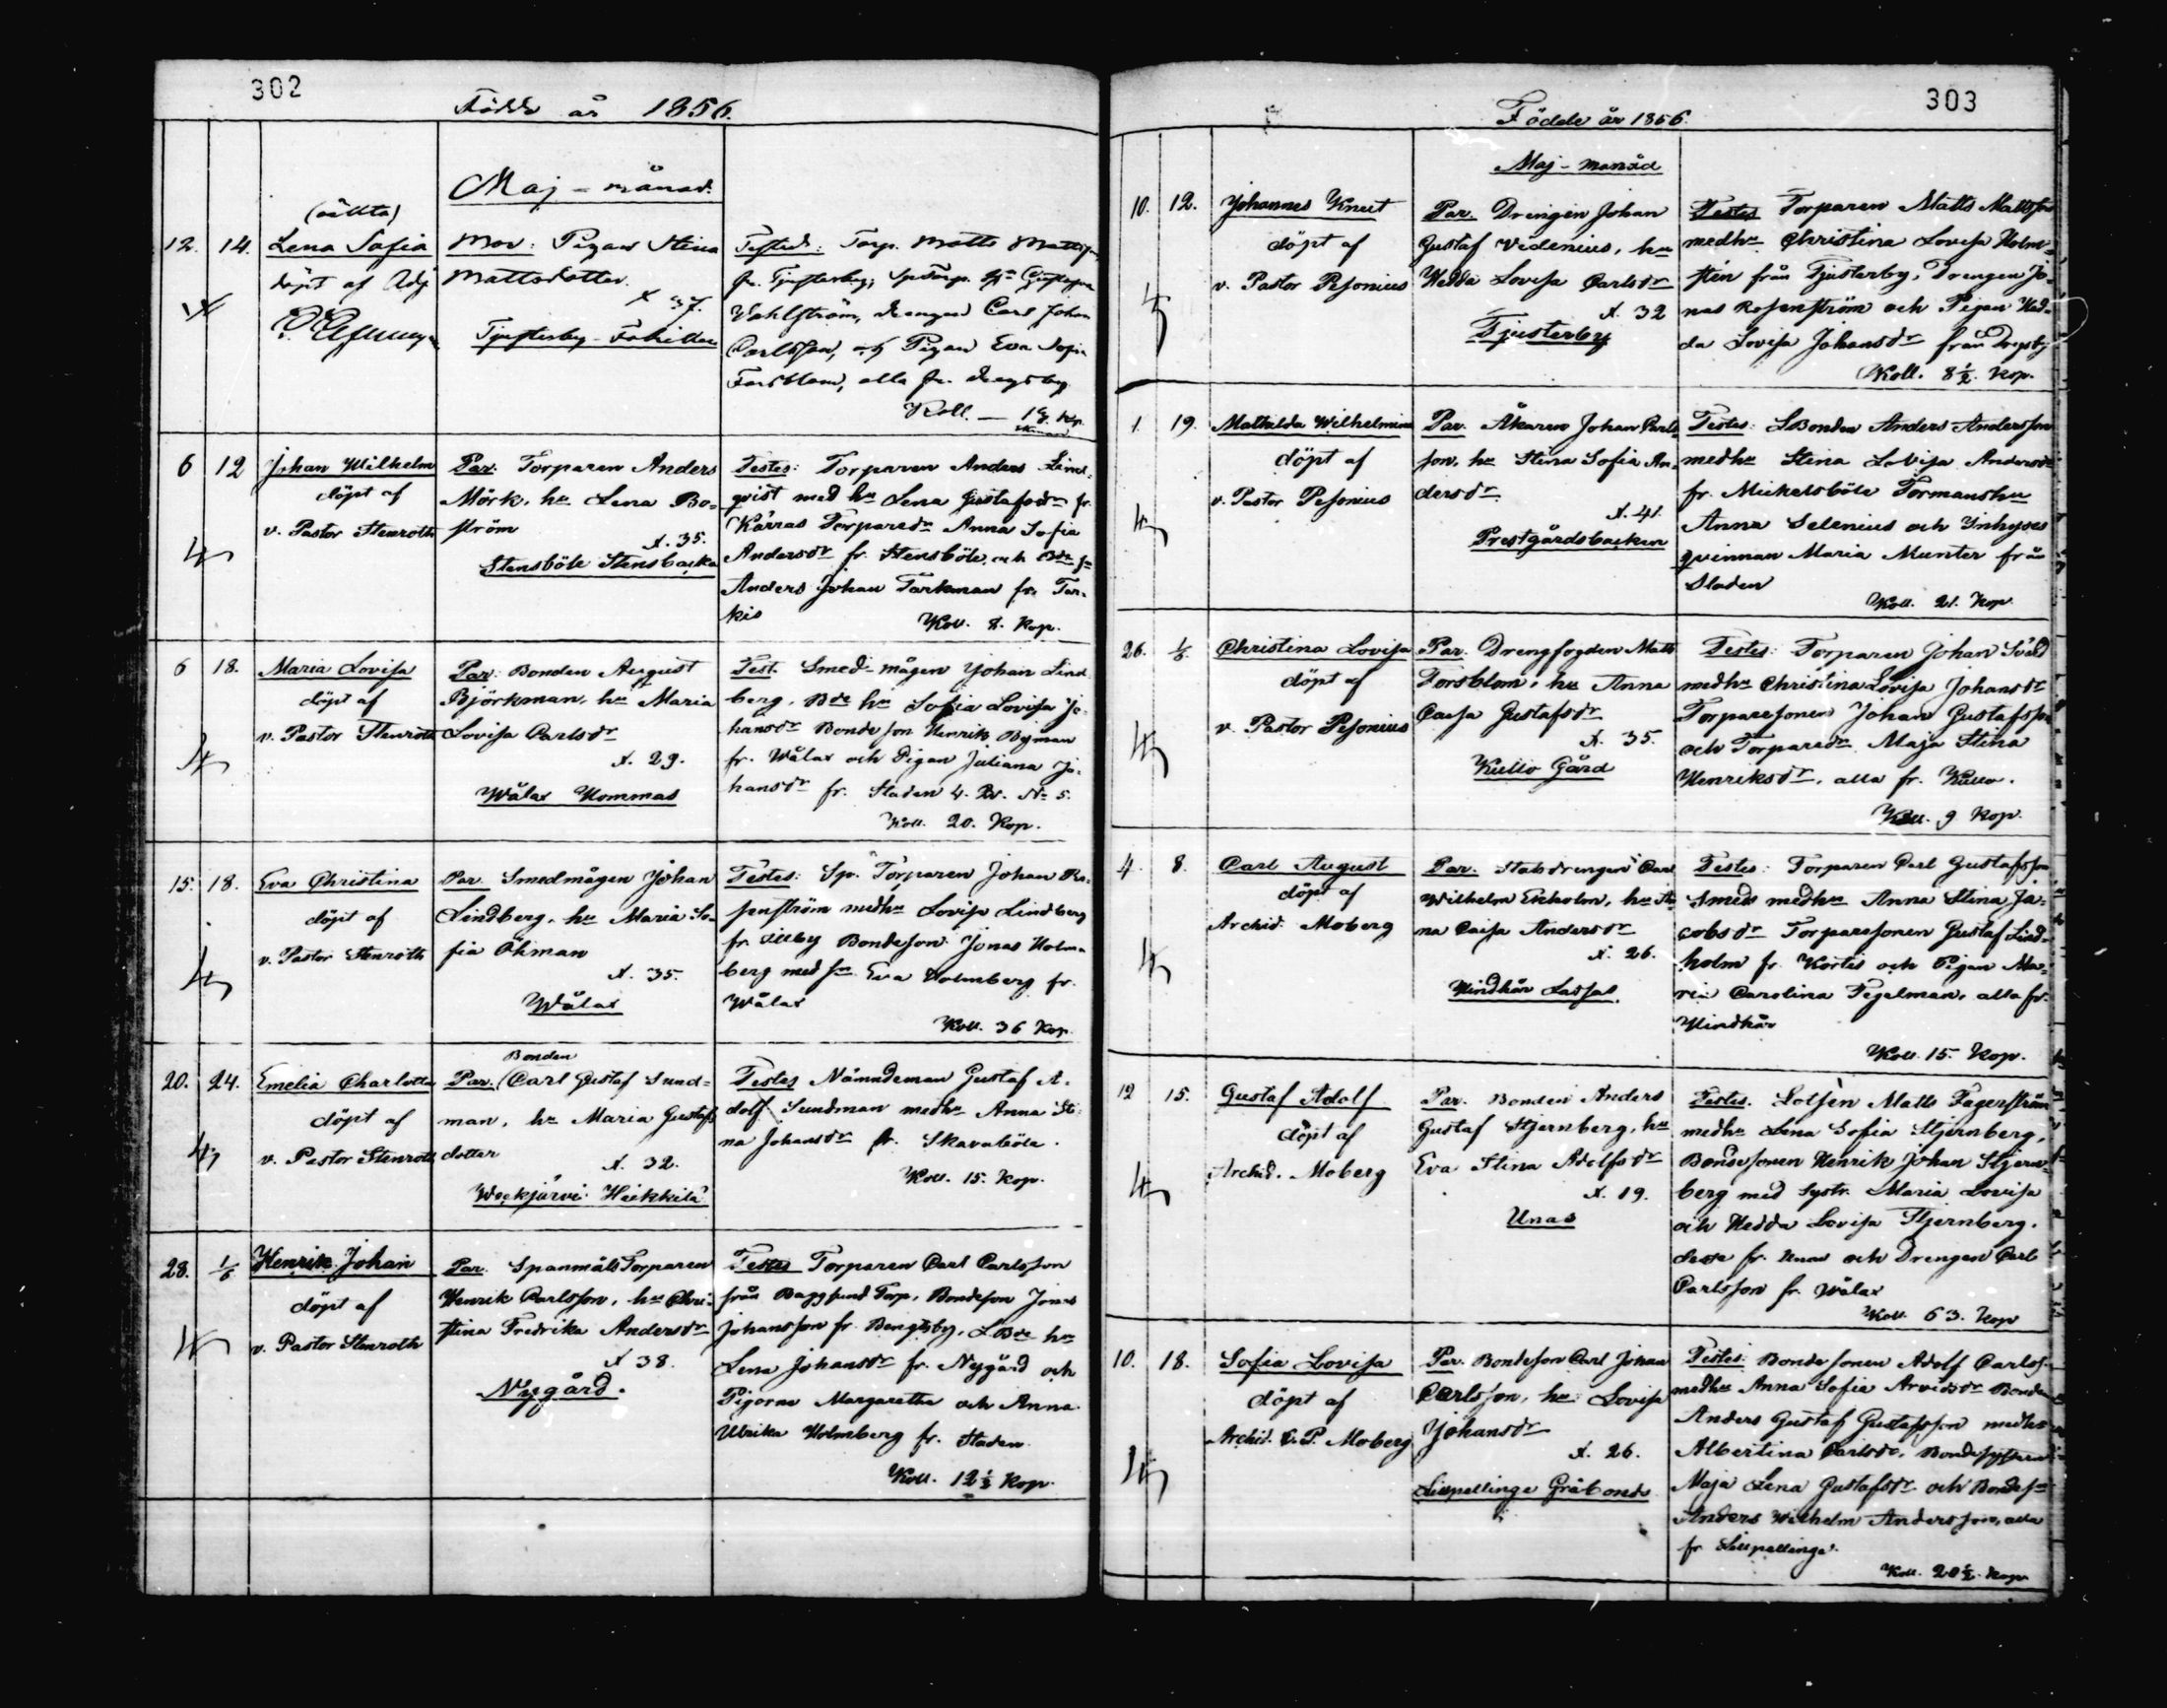 302
Födde år 1856.
Maj - månad.
12. 14.
(oäkta)
Lena Sofia
döpt af Adj
Mor: Pigan Stina
Mattsdotter.
A 37.
Tjusterby
Testes: Torp. Matts Mattsson
fr. Tjusterby,
Wahlström, drengen Carl Johan
Carlsson, och Pigan Eva Sofia
Forsblom, alla fr.
Koll.
6 12
Johan Wilhelm
döpt af
v. Pastor Stenroth
Par: Torparen Anders
Mörk, hu Lena Bo-
ström
A. 35.
Stensböle Stensbacka
Testes: Torparen Anders Lind-
qvist med hu Lena Gustafsdr fr.
Karras Torparedr Anna Sofia
Andersdr fr. Stensböle, och
Anders Johan Tarkman fr. Tar-
kis
Koll. 8. Kop.
6 18.
Maria Lovisa
döpt af
v. Pastor Stenroth
Par: Bonden August
Björkman, hu Maria
Lovisa Carlsdr
A. 29.
Wålax Hommas
Test. Smed-mågen Johan Lind-
berg, Bde hu Sofia Lovisa Jo-
hansdr Bondeson Henrik Byman
fr. Wålax och Pigan Juliana Jo-
hansdr fr. Staden 4. Qv. No 5.
Koll. 20. Kop.
15. 18.
Eva Christina
döpt af
v. Pastor Stenroth
Par. Smedmågen Johan
Lindberg, hu Maria So-
fia Öhman
A. 35.
Wålax
Testes: Sp. Torparen Johan Ro-
senström medhu Lovisa Lindberg
fr. Illby Bondeson Jonas Holm-
berg med sr. Eva Holmberg fr.
Wålax
Koll. 36 Kop.
20. 24.
Emelia Charlotta
döpt af
v. Pastor Stenroth
Bonden
Par. Carl Gustaf Sund-
man, hu Maria Gustafs
dotter
A. 32.
Weckjärvi Heikkilä
Testes Nämndeman Gustaf A-
dolf Sundman medhu Anna Sti-
na Johansdr fr. Skavaböle.
Koll. 15. Kop.
28. 1/6
Henrik Johan
döpt af
v. Pastor Stenroth
Par. Spanmåls Torparen
Henrik Carlsson, hu Chri-
stina Fredrika Andersdr
A 38.
Nygård.
Testes Torparen Carl Carlsson
från Baggsund Torp, Bondeson Jonas
Johansson fr. Bengtsby, LBde hu
Lena Johansdr fr. Nygård och
Pigorna Margaretha och Anna
Ulrika Holmberg fr. Staden
Koll. 12 ½ Kop.
303
Födde år 1856.
Maj - månad
10. 12.
Johannes Knut
döpt af
v. Pastor Pesonius
Par. Drengen Johan
Gustaf Videnius, hu
Hedda Lovisa Carlsdr
A. 32
Tjusterby
Testes Torparen Matts Mattsson
medhu Christina Lovisa Holm-
stén från Tjusterby, Drengen Jo-
nas Rosenström och Pigan Hed-
da Lovisa Johansdr från Drägsby
Koll. 8 ½. Kop.
1. 19.
Mathilda Wilhelmina
döpt af
v. Pastor Pesonius
Par. Åkaren Johan Carls-
son, hu Stina Sofia An-
dersdr
A. 41.
Prestgårdsbacken
Testes: LBonden Anders Andersson
medhu Stina Lovisa Andersdr
fr. Mickelsböle Formanshu
Anna Selenius och Inhyses
qvinnan Maria Munter från
Staden
Koll. 21. Kop
26. 1/6.
Christina Lovisa
döpt af
v. Pastor Pesonius
Par. Drengfogden Matts
Forsblom, hu Anna
Cajsa Gustafsdr
A. 35.
Kullo Gård
Testes: Torparen Johan Svärd
medhu Christina Lovisa Johansdr
Torparesonen Johan Gustafsson
och Torparedr Maja Stina
Henriksdr, alla fr. Kullo.
Koll. 9 Kop.
4. 8.
Carl August
döpt af
Archid. Moberg
Par. Statsdrengen Carl
Wilhelm Ekholm, hu An-
na Caisa Andersdr
A. 26.
Hindhår Lassas.
Testes: Torparen Carl Gustafsson
Smeds medhu Anna Stina Ja-
cobsdr Torparesonen Gustaf Lind-
holm fr. Kortis och Pigan Ma-
ria Carolina Tegelman, alla fr.
Hindhår
Koll 15. Kop.
12 15.
Gustaf Adolf
döpt af
Archid. Moberg
Par. Bonden Anders
Gustaf Stjernberg, hu
Eva Stina Adolfsdr
A. 19.
Unas
Testes. Lotsen Matts Fagerström
medhu Lena Sofia Stjernberg,
Bondesonen Henrik Johan Stjern-
berg med Systr. Maria Lovisa
och Hedda Lovisa Stjernberg,
desse fr. Unas och Drengen Carl
Carlsson fr. Wålax
Koll. 63. Kop
10. 18.
Sofia Lovisa
döpt af
Archid. C. P. Moberg
Par. Bondeson Carl Johan
Carlsson, hu Lovisa
Johansdr
A. 26.
Lillpellinge Gråbonds
Testes: Bondesonen Adolf Carlss.
medhu Anna Sofia Arvidsdr Bonden
Anders Gustaf Gustafsson medhu
Albertina Carlsdr, Bondesystern
Maja Lena Gustafsdr och Bondesn
Anders Wilhelm Andersson, alla
fr Lillpellinge.
Koll. 20 ½. Kop